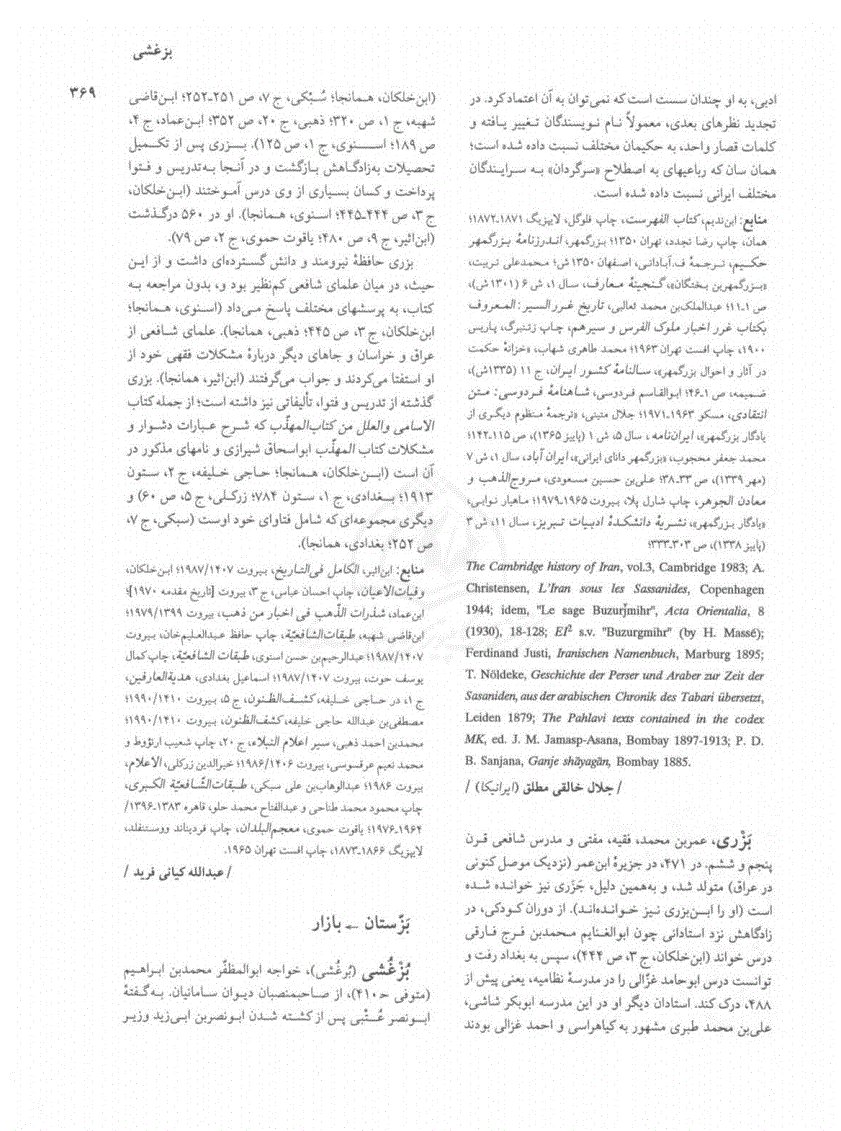 بزغشی
۳۶۹
ادبی، به او چندان سست است که نمی‌توان به آن اعتماد کرد. در
تجدید نظرهای بعدی، معمولاً نام نویسندگان تغییر یافته و
کلمات قصار واحد، به حکیمان مختلف نسبت داده شده است؛
همان سان که رباعیهای به اصطلاح «سرگردان» به سرایندگان
مختلف ایرانی نسبت داده شده است.
منابع: ابن‌ندیم، کتاب الفهرست، چاپ فلوگل، لایپزیگ ۱۸۷۱ـ۱۸۷۲؛
همان، چاپ رضا تجدد، تهران ۱۳۵۰؛ بزرگمهر، اندرزنامهٔ بزرگمهر
حکیم، ترجمهٔ ف. آبادانی، اصفهان ۱۳۵۰ ش؛ محمدعلی تربیت،
«بزرگمهربن بختگان»، گنجینهٔ معارف، سال ۱، ش ۶ (۱۳۰۱ ش)،
ص ۱ـ۱۱؛ عبدالملک‌بن محمد ثعالبی، تاریخ غرر السیر: المعروف
بکتاب غرر اخبار ملوک الفرس و سیرهم، چاپ زتنبرگ، پاریس
۱۹۰۰، چاپ افست تهران ۱۹۶۳؛ محمد طاهری شهاب، «خزانهٔ حکمت
در آثار و احوال بزرگمهر»، سالنامهٔ کشور ایران، ج ۱۱ (۱۳۳۵ش)،
ضمیمه، ص ۱ـ۴۶؛ ابوالقاسم فردوسی، شاهنامهٔ فردوسی: متن
انتقادی، مسکو ۱۹۶۳ـ۱۹۷۱؛ جلال متینی، «ترجمهٔ منظوم دیگری از
یادگار بزرگمهر»، ایران‌نامه، سال ۵، ش ۱ (پاییز ۱۳۶۵)، ص ۱۱۵ـ۱۴۲؛
محمد جعفر محجوب، «بزرگمهر دانای ایرانی»، ایران آباد، سال ۱، ش ۷
(مهر ۱۳۳۹)، ص ۳۳ـ۳۸؛ علی‌بن حسین مسعودی، مروج الذهب و
معادن الجوهر، چاپ شارل پلا، بیروت ۱۹۶۵ـ۱۹۷۹؛ ماهیار نوابی،
«یادگار بزرگمهر»، نشریهٔ دانشکدهٔ ادبیات تبریز، سال ۱۱، ش ۳
(پاییز ۱۳۳۸)، ص ۳۰۳ـ۳۳۳؛
The Cambridge history of Iran, vol.3, Cambridge 1983; A.
Christensen, L'Iran sous les Sassanides, Copenhagen
1944; idem, "Le sage Buzurǰmihr", Acta Orientalia, 8
(1930), 18-128; EI² s.v. "Buzurgmihr" (by H. Massé);
Ferdinand Justi, Iranischen Namenbuch, Marburg 1895;
T. Nöldeke, Geschichte der Perser und Araber zur Zeit der
Sasaniden, aus der arabischen Chronik des Tabari übersetzt,
Leiden 1879; The Pahlavi texts contained in the codex
MK, ed. J. M. Jamasp-Asana, Bombay 1897-1913; P. D.
B. Sanjana, Ganje shāyagān, Bombay 1885.
/ جلال خالقی مطلق (ایرانیکا) /
بَزْری، عمربن محمد، فقیه، مفتی و مدرس شافعی قرن
پنجم و ششم. در ۴۷۱، در جزیرهٔ ابن‌عمر (نزدیک موصل کنونی
در عراق) متولد شد، و به‌همین دلیل، جَزَری نیز خوانده شده
است (او را ابن‌بزری نیز خوانده‌اند). از دوران کودکی، در
زادگاهش نزد استادانی چون ابوالغنایم محمدبن فرج فارقی
درس خواند (ابن‌خلکان، ج ۳، ص ۴۴۴)، سپس به بغداد رفت و
توانست درس ابوحامد غزّالی را در مدرسهٔ نظامیه، یعنی پیش از
۴۸۸، درک کند. استادان دیگر او در این مدرسه ابوبکر شاشی،
علی‌بن محمد طبری مشهور به کیاهراسی و احمد غزالی بودند
(ابن‌خلکان، همانجا؛ سُبْکی، ج ۷، ص ۲۵۱ـ۲۵۲؛ ابن‌قاضی
شهبه، ج ۱، ص ۳۲۰؛ ذهبی، ج ۲۰، ص ۳۵۲؛ ابن‌عماد، ج ۴،
ص ۱۸۹؛ اسنوی، ج ۱، ص ۱۲۵). بزری پس از تکمیل
تحصیلات به‌زادگاهش بازگشت و در آنجا به‌تدریس و فتوا
پرداخت و کسان بسیاری از وی درس آموختند (ابن‌خلکان،
ج ۳، ص ۴۴۴ـ۴۴۵؛ اسنوی، همانجا). او در ۵۶۰ درگذشت
(ابن‌اثیر، ج ۹، ص ۴۸۰؛ یاقوت حموی، ج ۲، ص ۷۹).
بزری حافظهٔ نیرومند و دانش گسترده‌ای داشت و از این
حیث، در میان علمای شافعی کم‌نظیر بود و، بدون مراجعه به
کتاب، به پرسشهای مختلف پاسخ می‌داد (اسنوی، همانجا؛
ابن‌خلکان، ج ۳، ص ۴۴۵؛ ذهبی، همانجا). علمای شافعی از
عراق و خراسان و جاهای دیگر دربارهٔ مشکلات فقهی خود از
او استفتا می‌کردند و جواب می‌گرفتند (ابن‌اثیر، همانجا). بزری
گذشته از تدریس و فتوا، تألیفاتی نیز داشته است؛ از جمله کتاب
الاسامی والعلل من کتاب المهذّب که شرح عبارات دشوار و
مشکلات کتاب المهذّب ابواسحاق شیرازی و نامهای مذکور در
آن است (ابن‌خلکان، همانجا؛ حاجی خلیفه، ج ۲، ستون
۱۹۱۳؛ بغدادی، ج ۱، ستون ۷۸۴؛ زرکلی، ج ۵، ص ۶۰) و
دیگری مجموعه‌ای که شامل فتاوای خود اوست (سبکی، ج ۷،
ص ۲۵۲؛ بغدادی، همانجا).
منابع: ابن‌اثیر، الکامل فی‌التاریخ، بیروت ۱۹۸۷/۱۴۰۷؛ ابن‌خلکان،
وفیات‌الاعیان، چاپ احسان عباس، ج ۳، بیروت [تاریخ مقدمه ۱۹۷۰]؛
ابن‌عماد، شذرات الذّهب فی اخبار من ذهب، بیروت ۱۹۷۹/۱۳۹۹؛
ابن‌قاضی شهبه، طبقات‌الشافعیّة، چاپ حافظ عبدالعلیم‌خان، بیروت
۱۹۸۷/۱۴۰۷؛ عبدالرحیم‌بن حسن اسنوی، طبقات الشافعیّة، چاپ کمال
یوسف حوت، بیروت ۱۹۸۷/۱۴۰۷؛ اسماعیل بغدادی، هدیة‌العارفین،
ج ۱، در حاجی خلیفه، کشف‌الظنون، ج ۵، بیروت ۱۹۹۰/۱۴۱۰؛
مصطفی‌بن عبدالله حاجی خلیفه، کشف‌الظنون، بیروت ۱۹۹۰/۱۴۱۰؛
محمدبن احمد ذهبی، سیر اعلام النبلاء، ج ۲۰، چاپ شعیب ارنؤوط و
محمد نعیم عرقسوسی، بیروت ۱۹۸۶/۱۴۰۶؛ خیرالدین زرکلی، الاعلام،
بیروت ۱۹۸۶؛ عبدالوهاب‌بن علی سبکی، طبقات‌الشّافعیّة الکبری،
چاپ محمود محمد طناحی و عبدالفتاح محمد حلو، قاهره ۱۳۸۳ـ۱۳۹۶/
۱۹۶۴ـ۱۹۷۶؛ یاقوت حموی، معجم‌البلدان، چاپ فردیناند ووستنفلد،
لایپزیگ ۱۸۶۶ـ۱۸۷۳، چاپ افست تهران ۱۹۶۵.
/ عبدالله کیانی فرید /
بَزّستان ← بازار
بُزْغُشی (بُرغُشی)، خواجه ابوالمظفّر محمدبن ابراهیم
(متوفی ح ۴۱۰)، از صاحبمنصبان دیوان سامانیان. به‌گفتهٔ
ابونصر عُتْبی پس از کشته شدن ابونصربن ابی‌زید وزیر